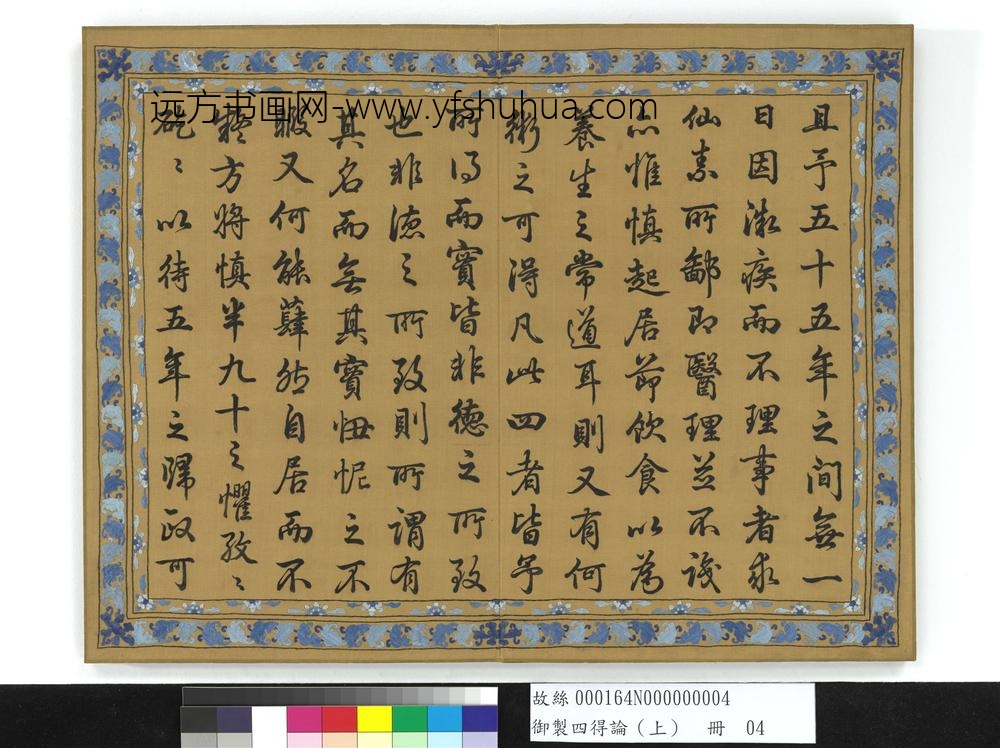 远方书画网-www.yfshuhua.com
且予五十五年之间無一
日因微疾而不理事者求
仙素所鄙即醫理並不識
亦惟慎起居節飲食以為
養生之常道耳則又有何
術之可得凡此四者皆予
所得而實皆非德之所致
也非德之所致則所謂有
其名而無其實忸怩之不
暇又何能肆然自居而不
穆方將慎半九十之懼孜〻
矻〻以待五年之歸政可
故絲000164N000000004
御製四得論(上) 冊 04